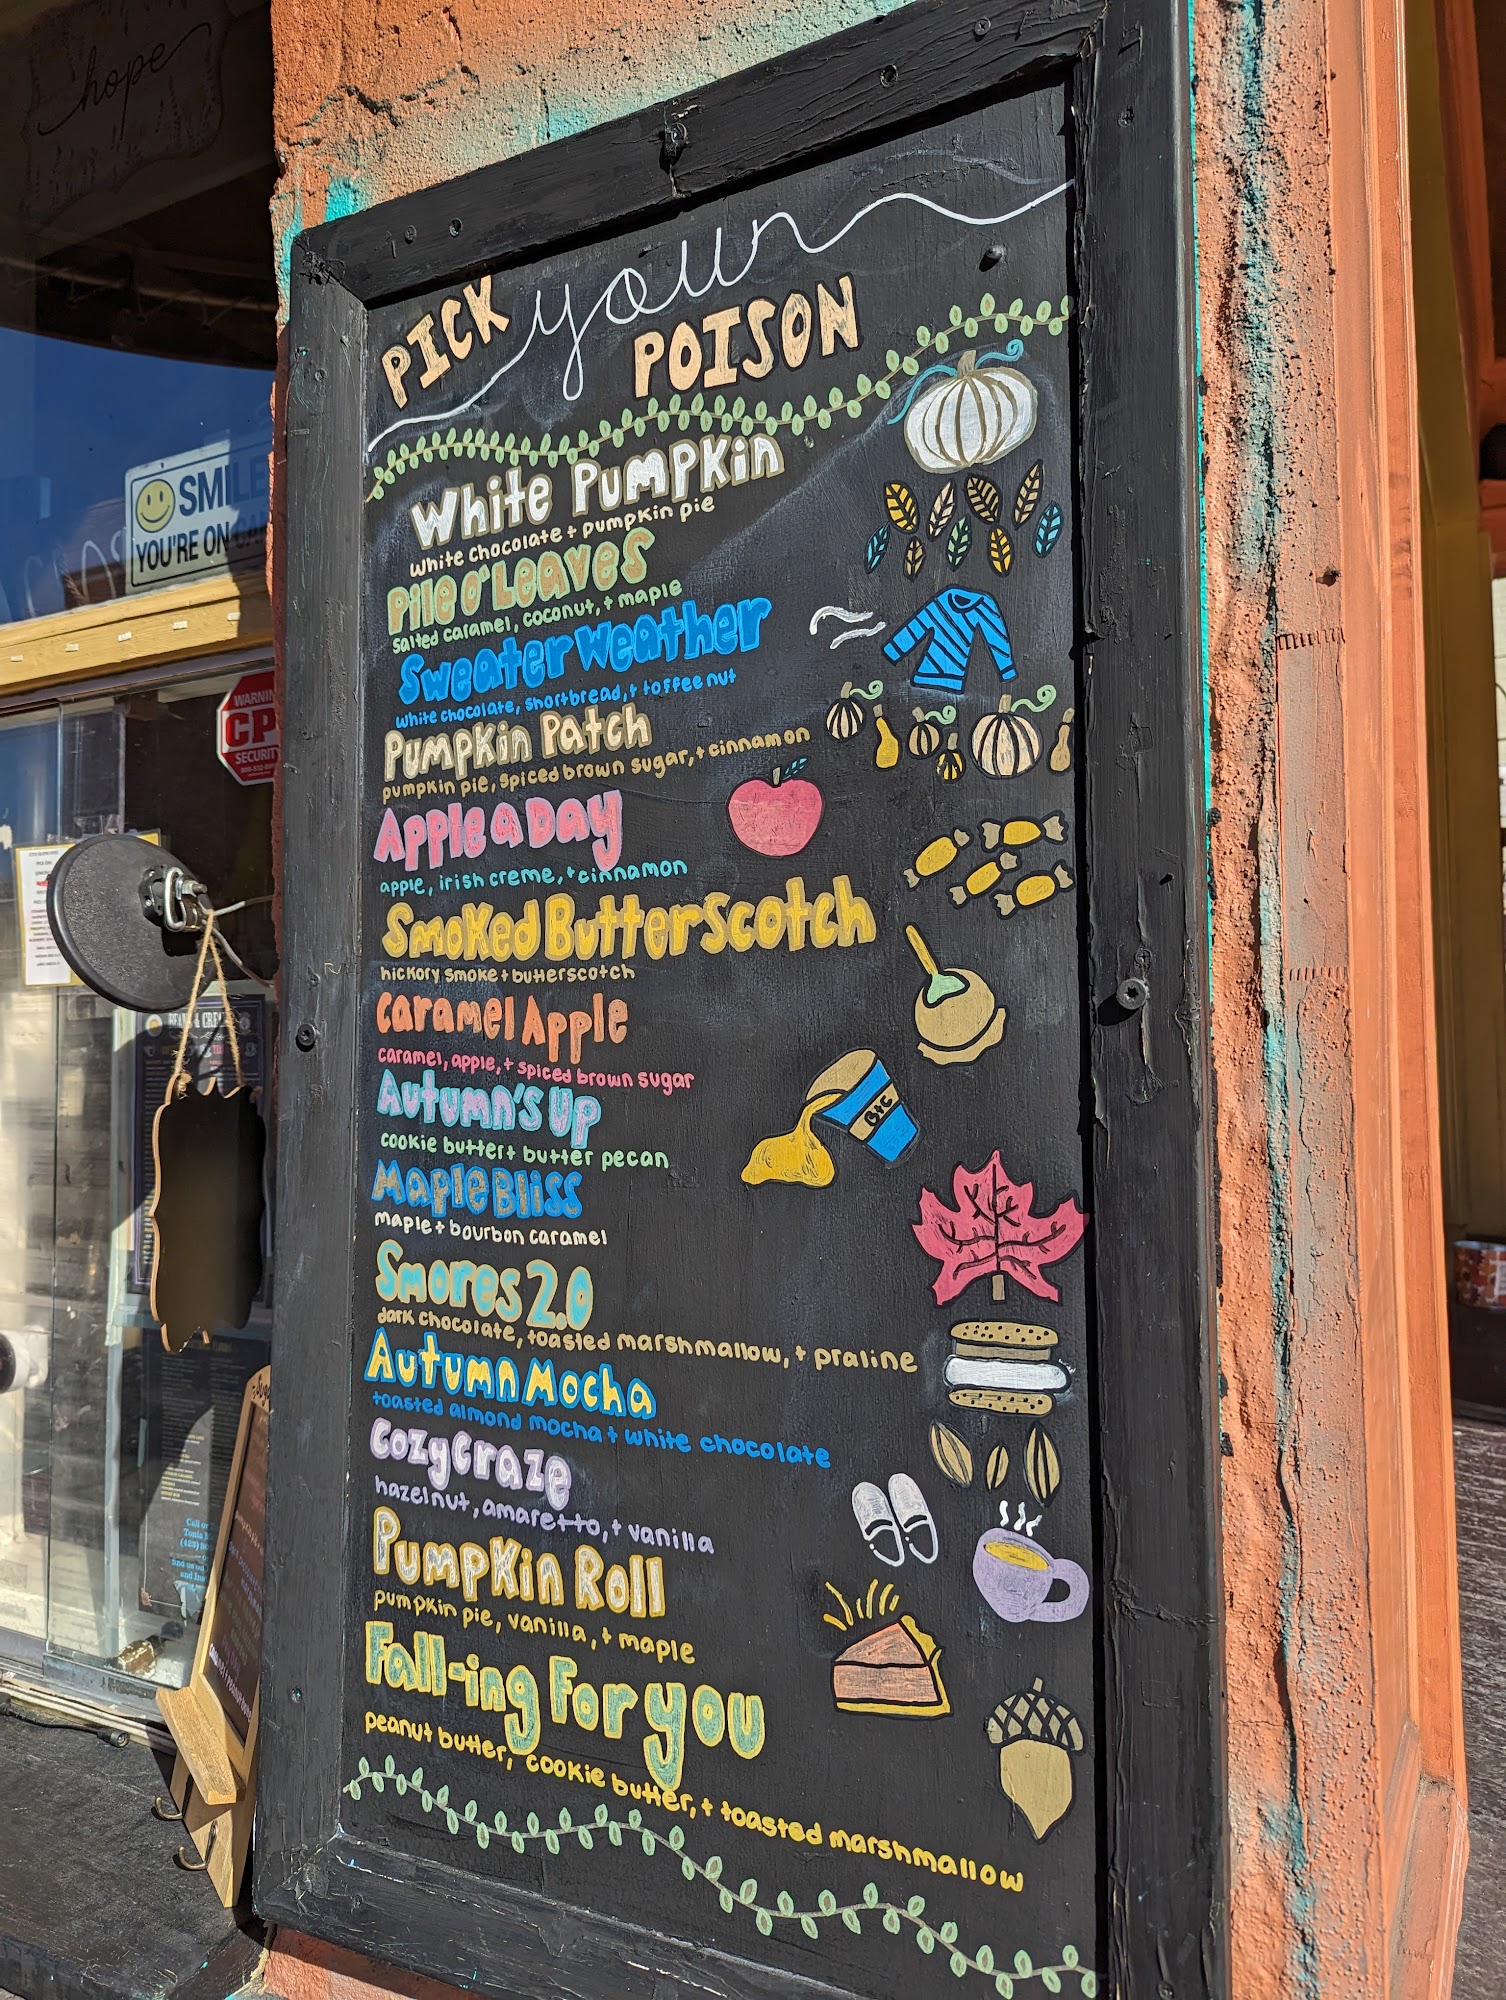 hope
SMILE
YOU'RE ON
WARNIN
CP
SECURIT
PICK your POISON
White Pumpkin
white chocolate + pumpkin pie
Pile o' Leaves
salted caramel, coconut, + maple
Sweater Weather
white chocolate, shortbread, + toffee nut
Pumpkin Patch
pumpkin pie, spiced brown sugar, + cinnamon
Apple a Day
apple, irish creme, + cinnamon
Smoked Butterscotch
hickory smoke + butterscotch
Caramel Apple
caramel, apple, + spiced brown sugar
Autumn's Up
cookie butter + butter pecan
B+C
Maple Bliss
maple + bourbon caramel
Smores 2.0
dark chocolate, toasted marshmallow, + praline
Autumn Mocha
toasted almond mocha + white chocolate
Cozy Craze
hazelnut, amaretto, + vanilla
Pumpkin Roll
pumpkin pie, vanilla, + maple
Fall-ing For you
peanut butter, cookie butter, + toasted marshmallow